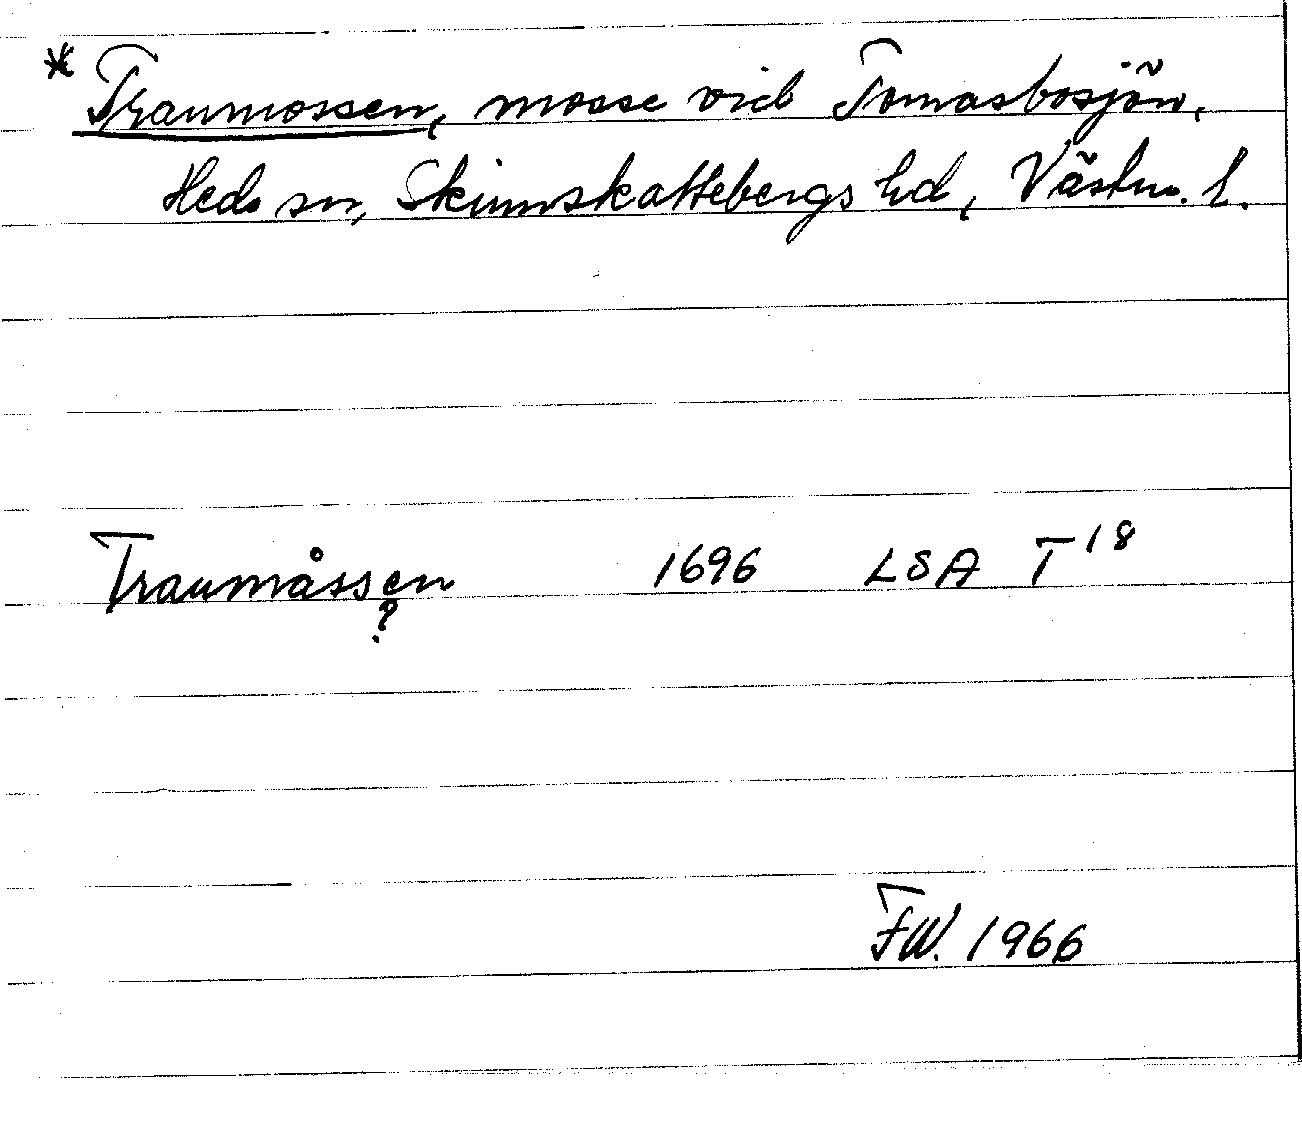 * Tranmossen, mosse vid Tomasbosjön,
Heds sn, Skinnskattebergs hd, Västm. l.
Tranmåssen 1696 LSA T 18
?
FW. 1966